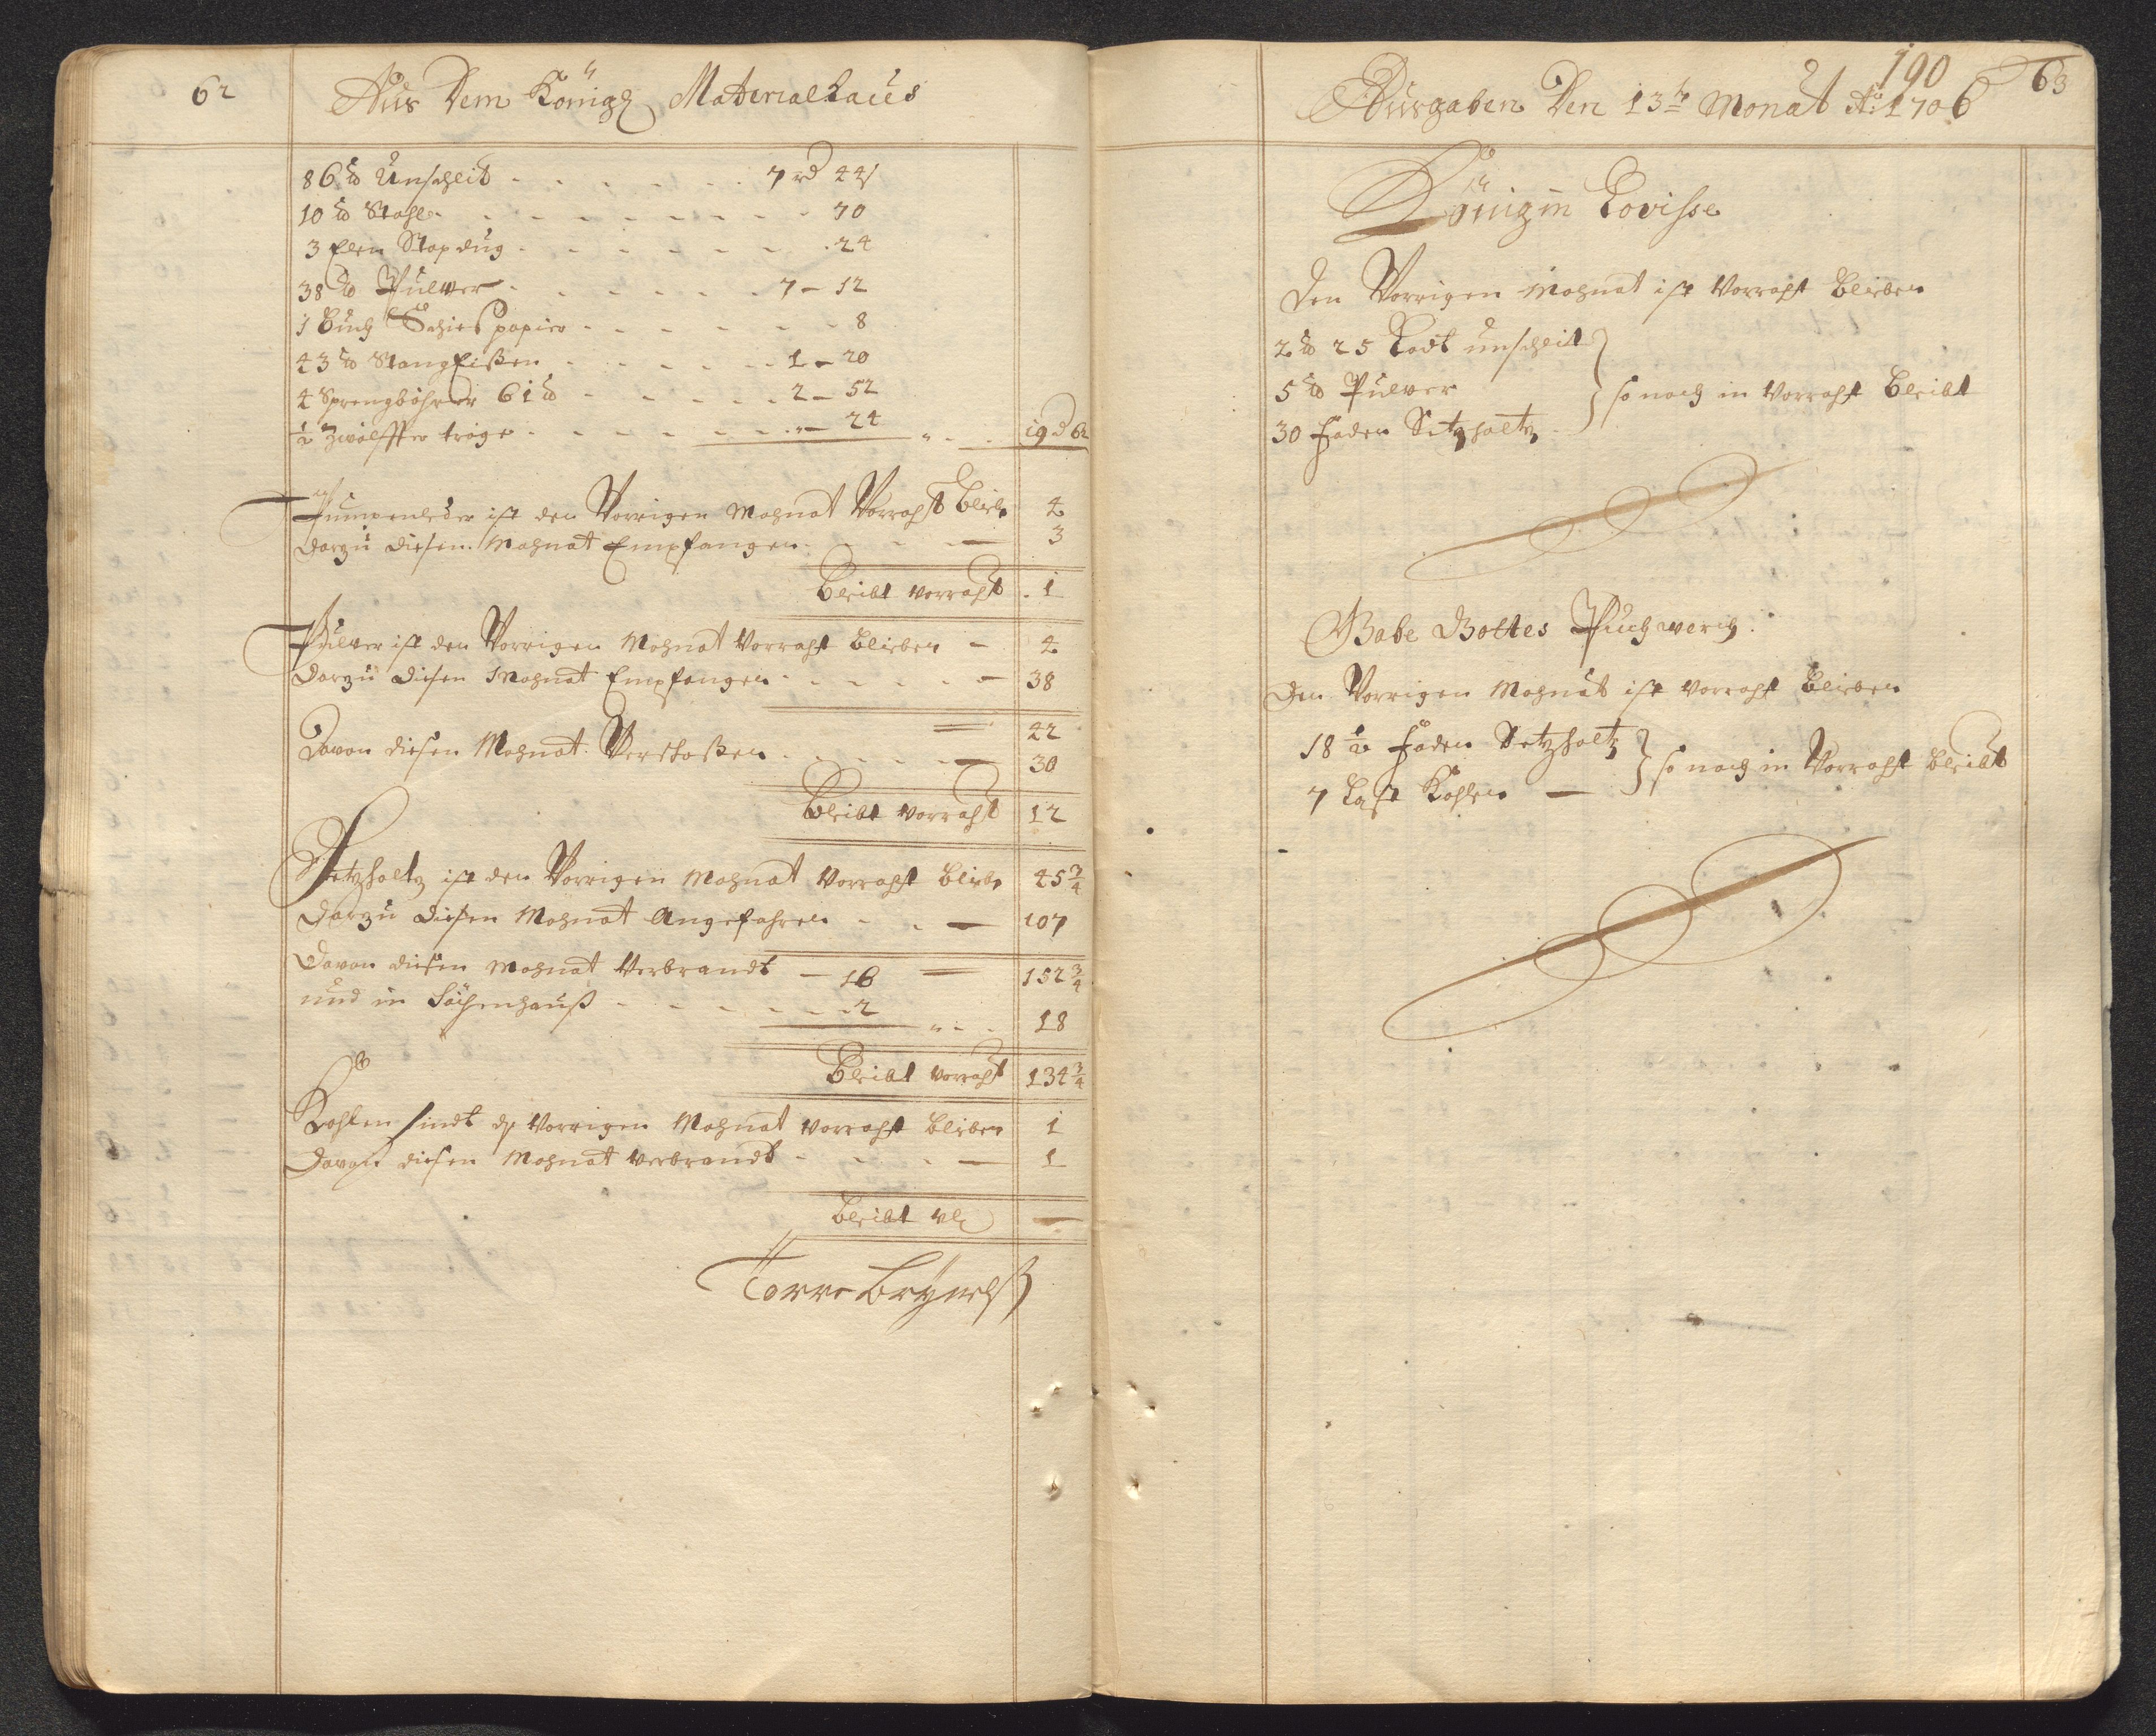 62
Aus Dem Königl Materialhaus
86 ℔ Unscheit - - - - - - 7 rd 44 s
10 ℔ Stahl - - - - - - - 70
3 Elen Stapdug - - - - - - 24
38 ℔ Pulver - - - - - 7 - 12
1 Buch Schiespapier - - - - - - 8
43 ℔ Stang Eißen - - - - - 1 - 20
4 Sprengböhrer 61 ℔ - - - - - 2 - 52
½ Zwölffter tröge - - - - - - „ - 24 „ - - 19 d 62
Pumpenleder ist den Vorrigen Mohnat Vorraht blieb 4
Darzu diesen Mohnat Empfangen - - - 3
Bleibt vorraht 1
Pulver ist den Vorrigen Mohnat Vorraht blieben - 4
Darzu diesen Mohnat Empfangen - - - - - 38
42
Davon diesen Mohnat Verschoßen - - - - - 30
Bleibt vorraht 12
Setzholtz ist den Vorrigen Mohnat Vorraht blieb 45 ¾
Darzu diesen Mohnat Angefahren - - - 107
Davon diesen Mohnat Verbrandt - 16 — 152 ¾
und in - - - - - 2 „ - - 18
Bleibt vorraht 134 ¾
Kohlen sindt den Vorrigen Mohnat Vorraht blieben 1
Davon diesen Mohnat Verbrandt - - - - 1
bleibt —
190
Ausgaben Den 13 tn Monat Ao 1706
63
Königin Lovisse
Den Vorrigen Mohnat ist Vorraht blieben
2 ℔ 25 Lodt unscheit
5 ℔ Pulver } so noch in Vorraht bleibt
30 Faden Setzholtz
Gabe Gottes Puchwerch.
Den Vorrigen Mohnat ist Vorraht blieben
18 ½ Faden Setzholtz } so noch in Vorraht bleibt
7 Last Kohlen —